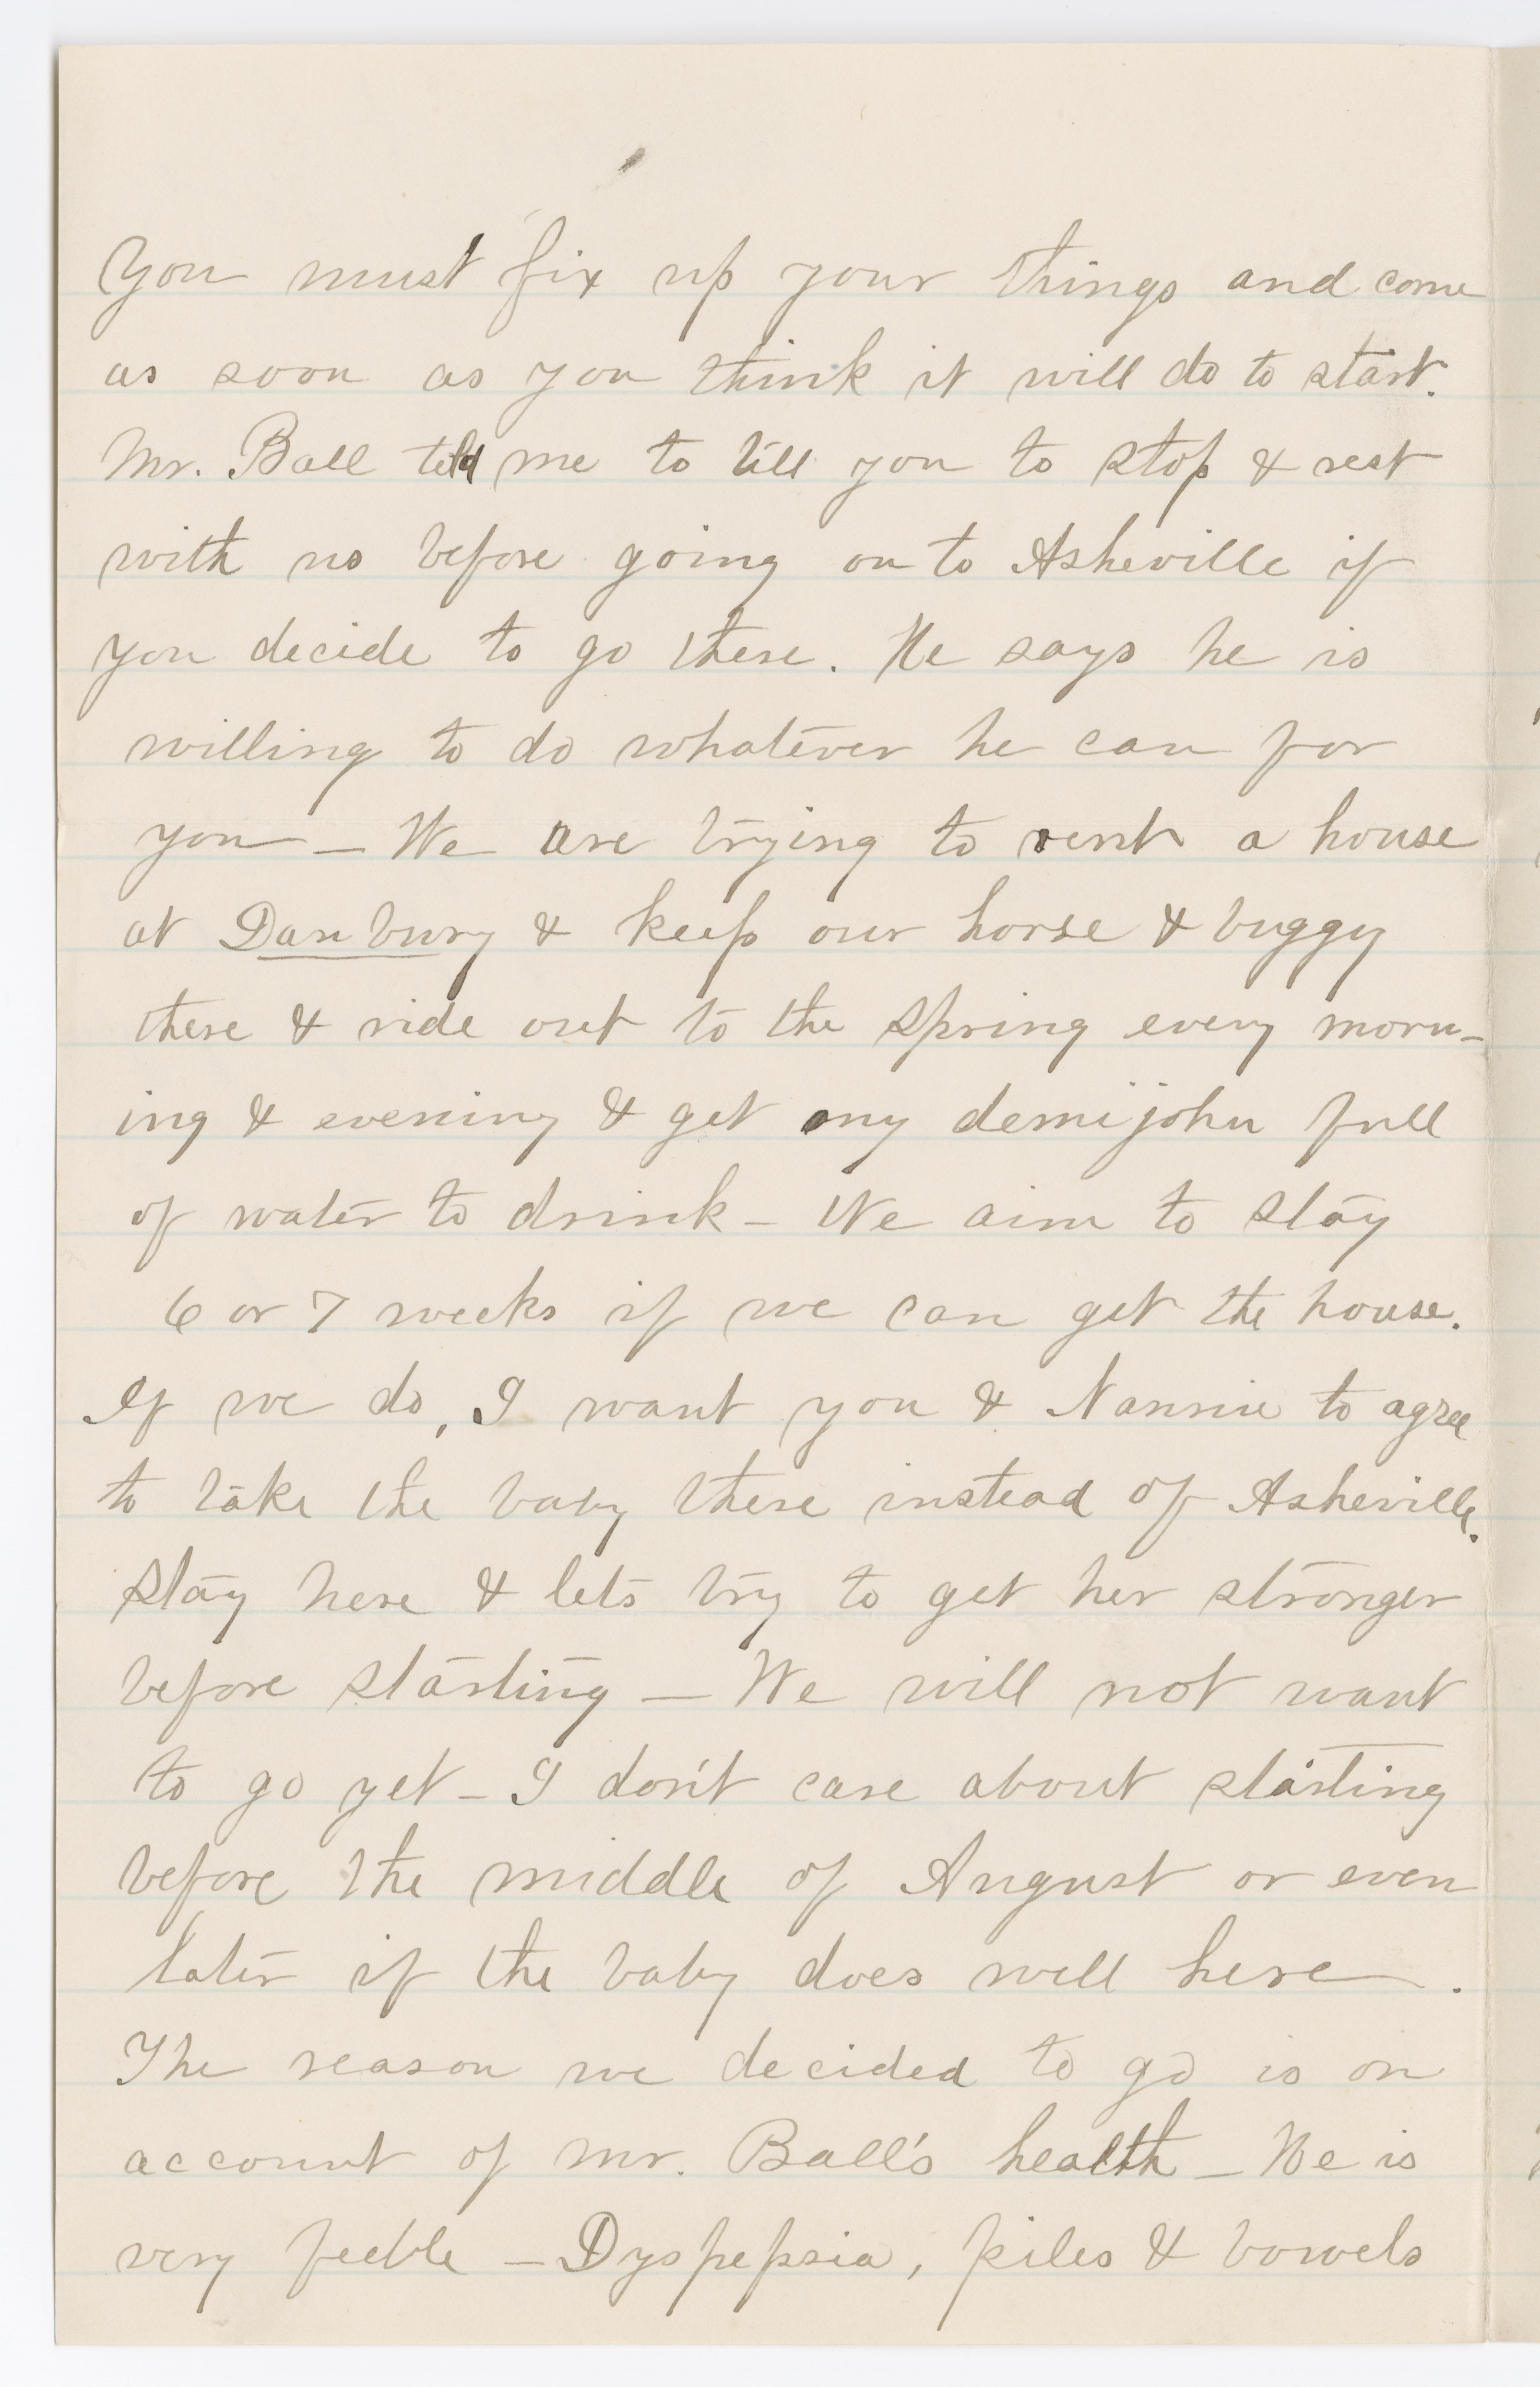 You must fix up your things and come
as soon as you think it will do to start.
Mr. Ball told me to till you to stop & rest
with us before going on to Asheville if
you decide to go there. He says he is
willing to do whatever he can for
you — We are trying to rent a house
at Danbury & keep our horse & buggy
there & ride out to the spring every morn-
ing & evening & get my demijohn full
of water to drink — We aim to stay
6 or 7 weeks if we can get the house.
If we do, I want you & Nannie to agree
to take the baby there instead of Asheville.
Stay here & lets try to get her stronger
before starting — We will not want
to go yet — I don't care about starting
before the middle of August or even
later if the baby does well here.
The reason we decided to go is on
account of Mr. Ball's health — He is
very feeble — Dyspepsia, piles & bowels